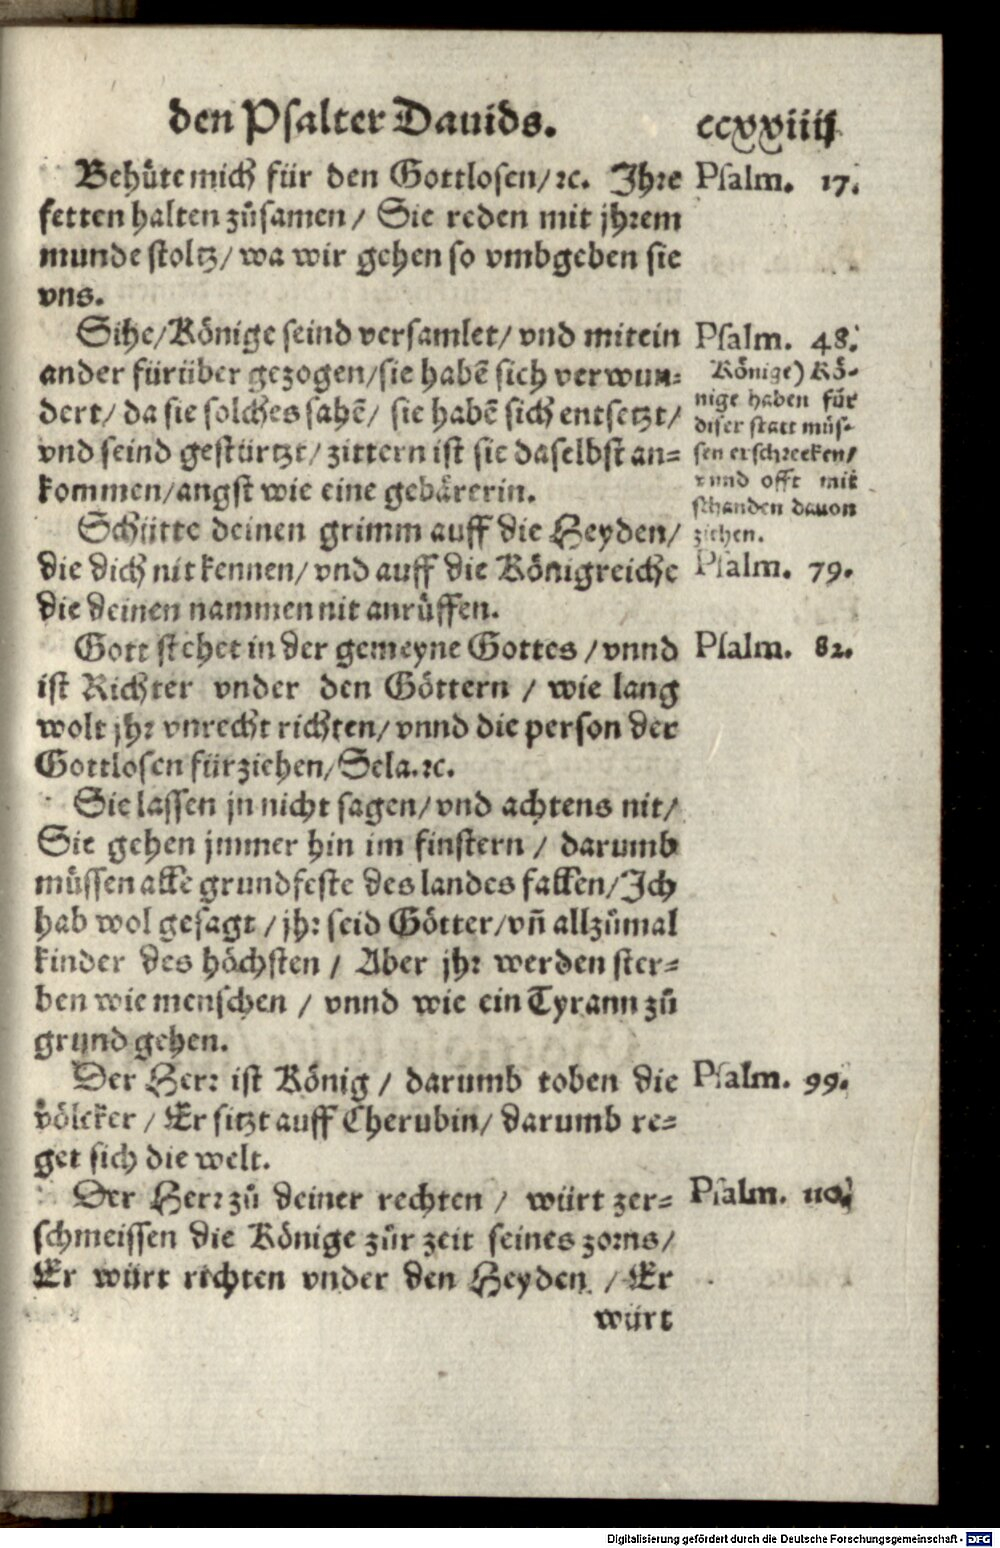 den Psalter Dauids. ccxxiiij
Behůte mich für den Gottlosen/ꝛc. Ihre
fetten halten zůsamen / Sie reden mit jhrem
munde stoltz/ wa wir gehen so vmbgeben sie
vns.
Psalm. 17.
Sihe/Könige seind versamlet/ vnd mitein
ander fürüber gezogen/sie habẽ sich verwun-
dert/ da sie solches sahẽ/ sie habẽ sich entsetzt/
vnd seind gestürtzt/ zittern ist sie daselbst an-
kommen/angst wie eine gebärerin.
Psalm. 48.
Könige) Kö-
nige haben für
diser statt müs-
sen erschrecken/
vnnd offt mit
schanden dauon
ziehen.
Schütte deinen grimm auff die Heyden/
die dich nit kennen/ vnd auff die Königreiche
die deinen nammen nit anrůffen.
Psalm. 79.
Gott stehet in der gemeyne Gottes / vnnd
ist Richter vnder den Göttern / wie lang
wolt jhr vnrecht richten/ vnnd die person der
Gottlosen fürziehen/ Sela.ꝛc.
Psalm. 82.
Sie lassen jn nicht sagen/ vnd achtens nit/
Sie gehen jmmer hin im finstern / darumb
müssen alle grundfeste des landes fallen/Ich
hab wol gesagt / jhr seid Götter/vñ allzůmal
kinder des höchsten / Aber jhr werden ster-
ben wie menschen / vnnd wie ein Tyrann zů
grund gehen.
Der Herr ist König / darumb toben die
völcker / Er sitzt auff Cherubin/ darumb re-
get sich die welt.
Psalm. 99.
Der Herr zů deiner rechten / würt zer-
schmeissen die Könige zůr zeit seines zorns/
Er würt richten vnder den Heyden / Er
würt
Psalm. 110.
Digitalisierung gefördert durch die Deutsche Forschungsgemeinschaft - DFG